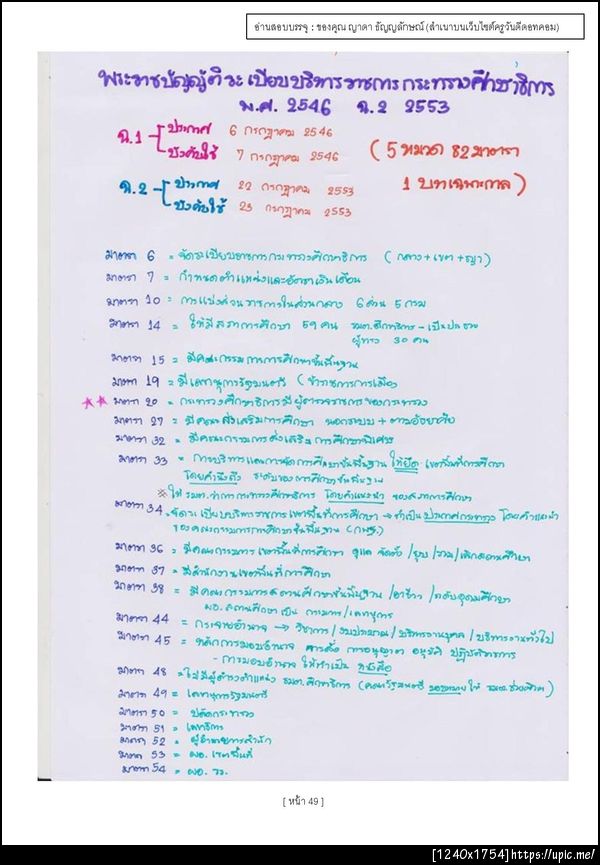 อ่านสอบบรรจุ : ของคุณ ญาดา ธัญญลักษณ์ (สำเนาบนเว็บไซต์ครูวันดีดอทคอม)
พระราชบัญญัติระเบียบบริหารราชการกระทรวงศึกษาธิการ
พ.ศ. 2546 ฉ.2 2553
ฉ.1 ประกาศ 6 กรกฎาคม 2546
บังคับใช้ 7 กรกฎาคม 2546
(5 หมวด 82 มาตรา
1 บทเฉพาะกาล)
ฉ.2 ประกาศ 22 กรกฎาคม 2553
บังคับใช้ 23 กรกฎาคม 2553
มาตรา 6 = จัดระเบียบราชการกระทรวงศึกษาธิการ (กลาง+เขต+ญา)
มาตรา 7 = กำหนดตำแหน่งและอัตราเงินเดือน
มาตรา 10 = การแบ่งส่วนราชการในส่วนกลาง 6 ส่วน 5 กรม
มาตรา 14 = ให้มีสภาการศึกษา 59 คน รมต.ศึกษาธิการ - เป็นประธาน
ผู้ทรงฯ 30 คน
มาตรา 15 = มีคณะกรรมการการศึกษาขั้นพื้นฐาน
มาตรา 19 = มีเลขานุการรัฐมนตรี (ข้าราชการการเมือง
★★ มาตรา 20 = กระทรวงศึกษาธิการมีผู้ตรวจราชการของกระทรวง
มาตรา 27 = มีคณะส่งเสริมการศึกษา นอกระบบ + ตามอัธยาศัย
มาตรา 32 = มีคณะกรรมการส่งเสริมการศึกษาพิเศษ
มาตรา 33 = การบริหารและการจัดการศึกษาขั้นพื้นฐาน ให้ยึด เขตพื้นที่การศึกษา
โดยคำนึงถึง ระดับของการศึกษาขั้นพื้นฐาน
※ ให้ รมต.ว่าการกระทรวงศึกษาธิการ โดยคำแนะนำ ของสภาการศึกษา
มาตรา 34 = จัดระเบียบบริหารราชการเขตพื้นที่การศึกษา → ทำเป็นประกาศกระทรวง โดยคำแนะนำ
ของคณะกรรมการการศึกษาขั้นพื้นฐาน (กพฐ.)
มาตรา 36 = มีคณะกรรมการเขตพื้นที่การศึกษา ดูแล จัดตั้ง/ยุบ/รวม/เลิกสถานศึกษา
มาตรา 37 = มีสำนักงานเขตพื้นที่การศึกษา
มาตรา 38 = มีคณะกรรมการสถานศึกษาขั้นพื้นฐาน /อาชีวะ /ระดับอุดมศึกษา
ผอ.สถานศึกษาเป็น กรรมการ/เลขานุการ
มาตรา 44 = กระจายอำนาจ → วิชาการ/งบประมาณ/บริหารงานบุคคล/บริหารงานทั่วไป
มาตรา 45 = หลักการมอบอำนาจ การสั่ง การอนุญาต อนุมัติ ปฏิบัติราชการ
- การมอบอำนาจ ให้ทำเป็น หนังสือ
มาตรา 48 = ไม่มีผู้ดำรงตำแหน่ง รมต.ศึกษาธิการ (คณะรัฐมนตรี มอบหมายให้ รมต.ช่วยฯ)
มาตรา 49 = เลขานุการรัฐมนตรี
มาตรา 50 = ปลัดกระทรวง
มาตรา 51 = เลขาธิการ
มาตรา 52 = ผู้อำนวยการสำนัก
มาตรา 53 = ผอ. เขตพื้นที่
มาตรา 54 = ผอ. รร.
[ หน้า 49 ]
[1240x1754]https://upic.me/